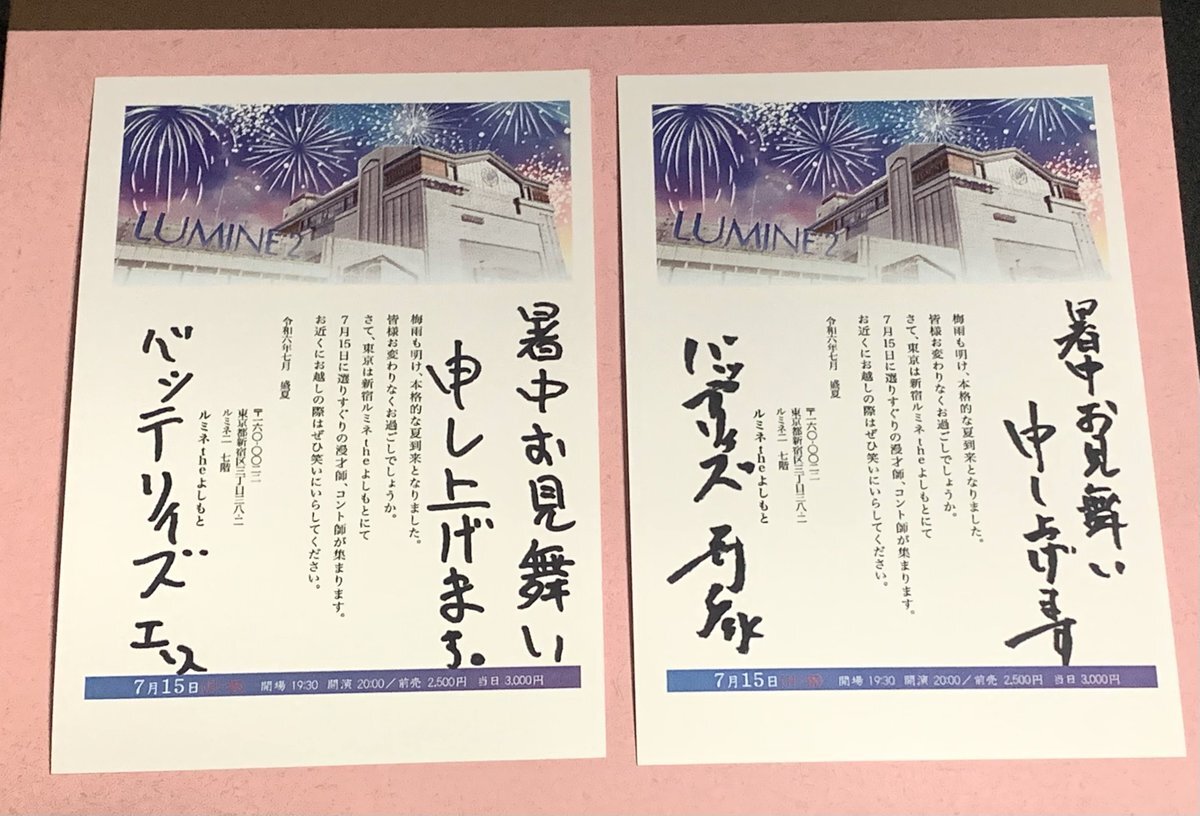 LUMINE 2
暑中お見舞い
申し上げます。
梅雨も明け、本格的な夏到来となりました。
皆様お変わりなくお過ごしでしょうか。
さて、東京は新宿ルミネtheよしもとにて
7月15日に選りすぐりの漫才師、コント師が集まります。
お近くにお越しの際はぜひ笑いにいらしてください。
令和六年七月 盛夏
〒一六〇-〇〇二二
東京都新宿区三丁目三八-二
ルミネ二 七階
ルミネtheよしもと
バッテリイズ エース
7月15日(月・祝) 開場 19:30 開演 20:00／前売 2,500円 当日 3,000円
LUMINE 2
暑中お見舞い
申し上げます
梅雨も明け、本格的な夏到来となりました。
皆様お変わりなくお過ごしでしょうか。
さて、東京は新宿ルミネtheよしもとにて
7月15日に選りすぐりの漫才師、コント師が集まります。
お近くにお越しの際はぜひ笑いにいらしてください。
令和六年七月 盛夏
〒一六〇-〇〇二二
東京都新宿区三丁目三八-二
ルミネ二 七階
ルミネtheよしもと
バッテリィズ 寺家
7月15日(月・祝) 開場 19:30 開演 20:00／前売 2,500円 当日 3,000円